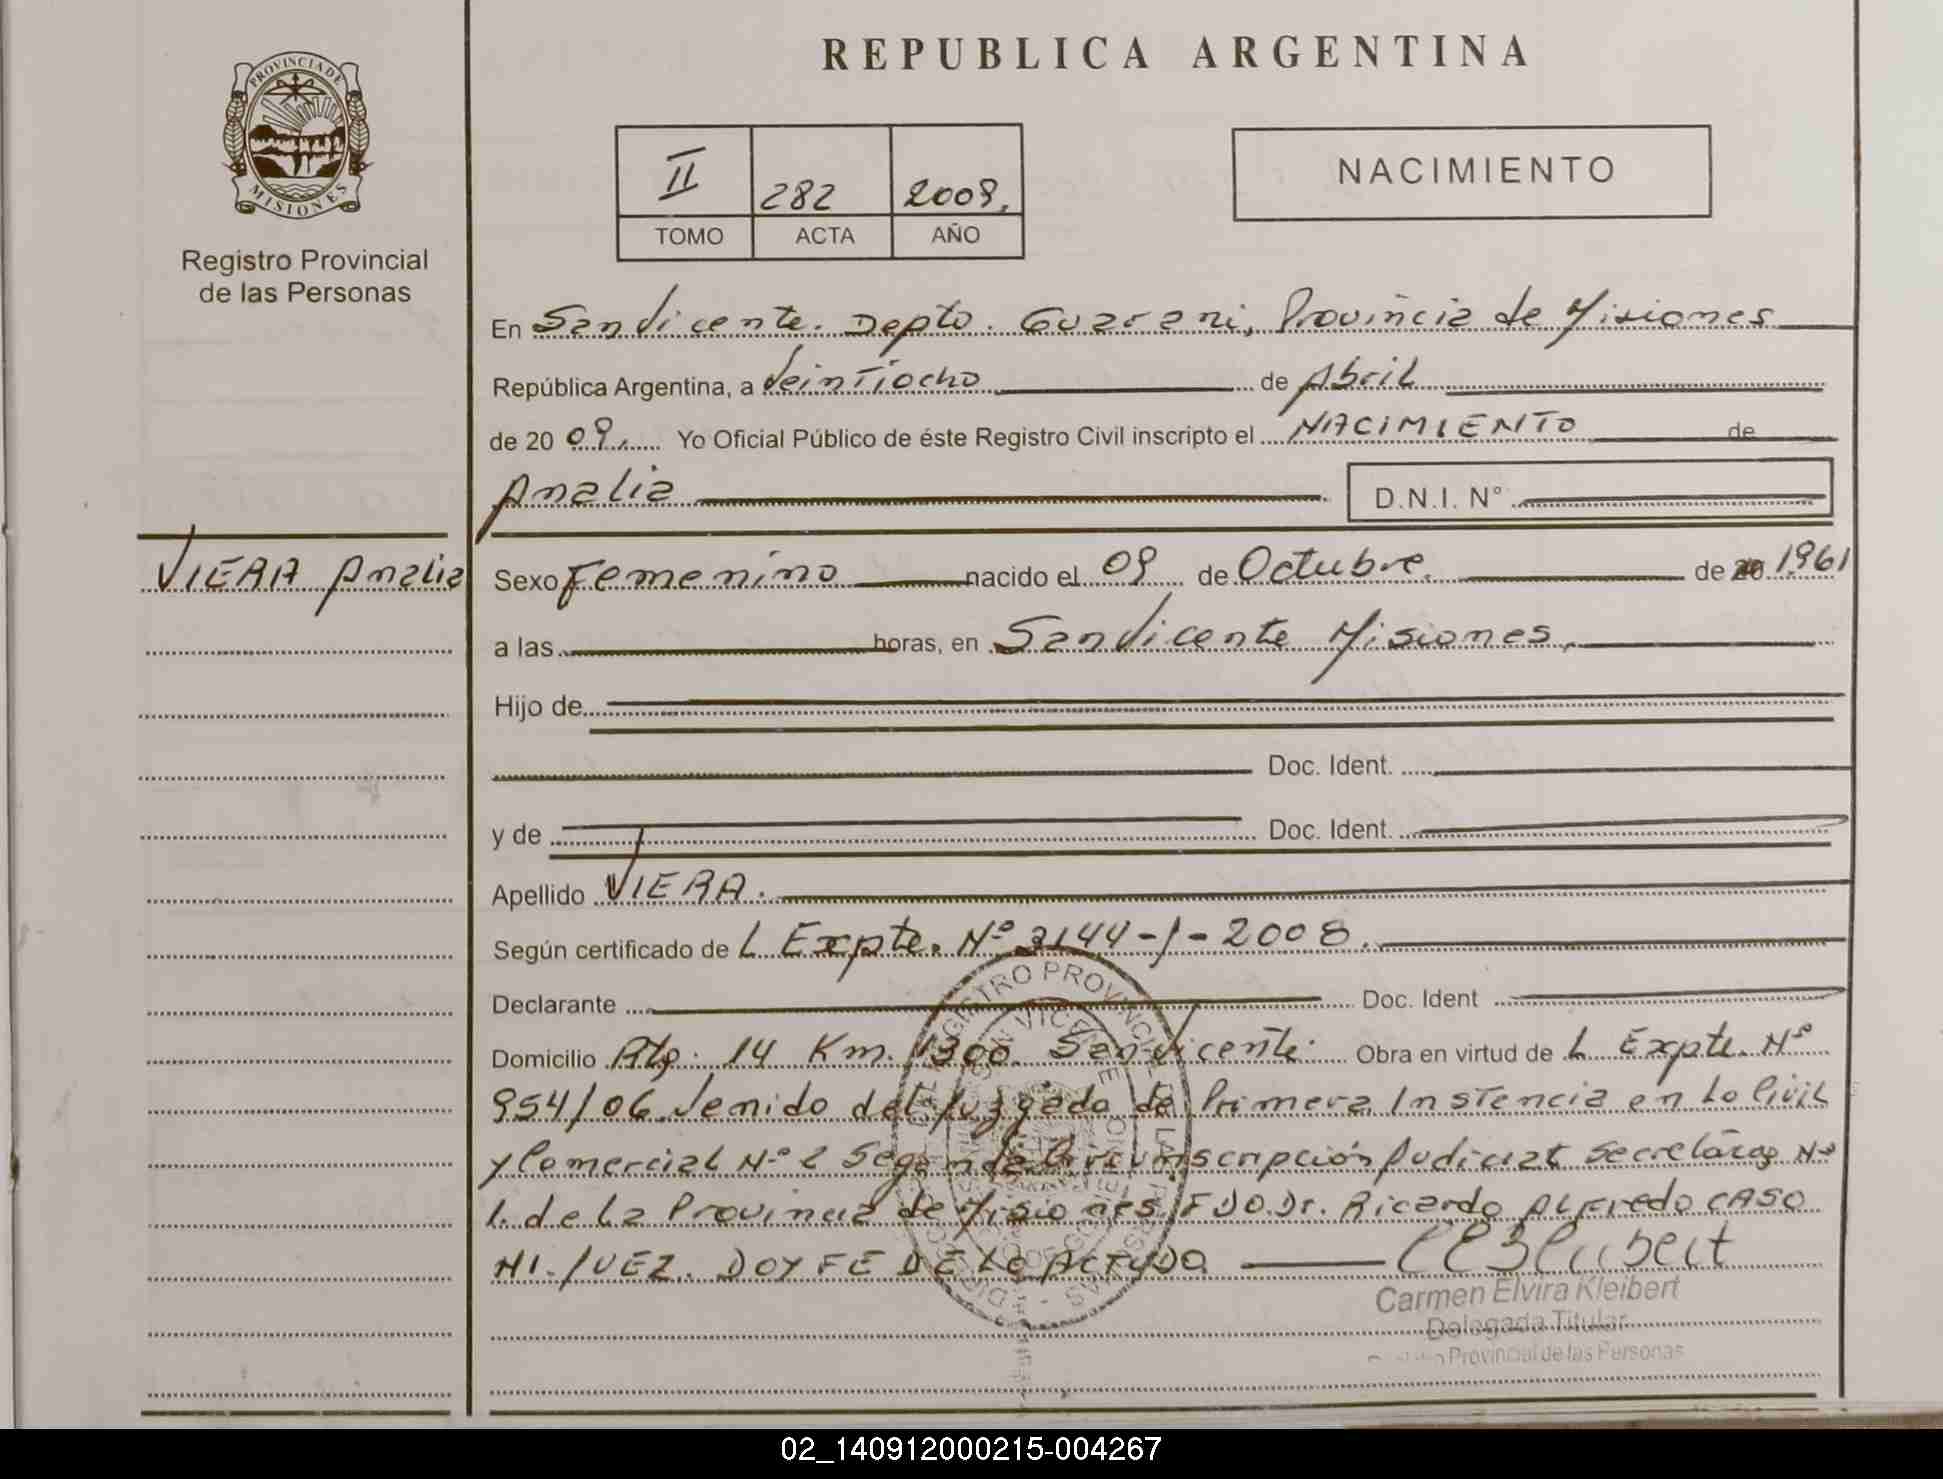 REPUBLICA ARGENTINA
PROVINCIA DE
MISIONES
Registro Provincial
de las Personas
II 282 2009.
TOMO ACTA AÑO
NACIMIENTO
En San Vicente. Depto. Guarani, Provincia de Misiones
República Argentina, a Veintiocho de Abril
de 20 09. Yo Oficial Público de éste Registro Civil inscripto el NACIMIENTO de
Analia D.N.I. N°
VIERA Analia
Sexo Femenino nacido el 09 de Octubre. de 20 1961
a las horas, en San Vicente Misiones,
Hijo de
Doc. Ident.
y de Doc. Ident.
Apellido VIERA.
Según certificado de L Expte. Nº 3144-1-2008.
Declarante Doc. Ident
Domicilio Rtg. 14 Km. 1300. San Vicente. Obra en virtud de L Expte. Nº
954/06 Venido del Juzgado de Primera Instancia en Lo Civil
y Comercial Nº 2 Segunda Circunscripción Judicial Secretaria Nº
1. de La Provincia de Misiones. FDO. Dr. Ricardo ALFredo CASO
NI. JUEZ. DOY FE DE LO ACTUADO
Carmen Elvira Kleibert
Delegada Titular
Provincial de las Personas
02_140912000215-004267